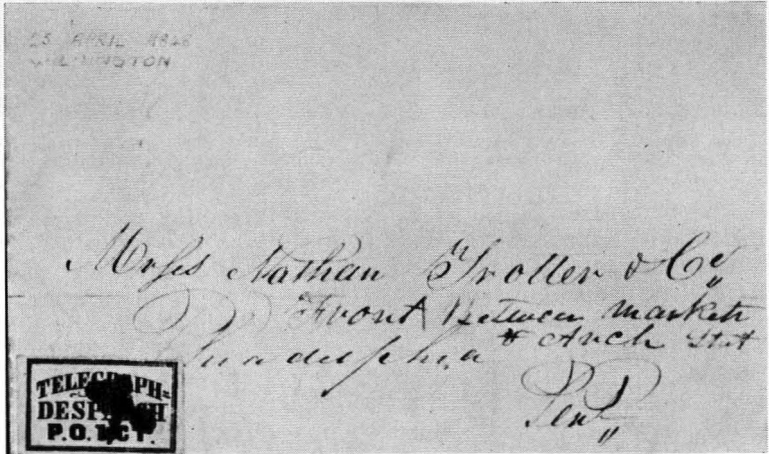 25 APRIL 1848
WILMINGTON
Messrs Nathan Trotter & Co
Front Between Market
& Arch Stst
Philadelphia
Penn
TELEGRAPH-
DESPATCH
P.O. 1 CT.